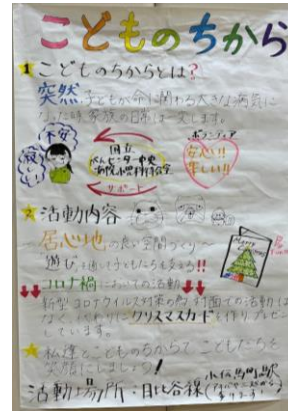 こどものちから
1 こどものちからとは?
突然、子どもが命に関わる大きな病気に
なった時、家族の日常は一変します。
不安
寂しい
国立
がんセンター中央
病院小児科待合室
サポート
ボランティア
安心!!
楽しい!!
2 活動内容
〜居心地の良い空間づくり〜
遊びを通して子どもたちを支える!!
コロナ禍においての活動
新型コロナウイルス対策の為、対面での活動は
なく、代わりにクリスマスカードを作り、プレゼント
しています。
私達とこどものちからで こどもたちを
笑顔にしましょう!
活動場所:日比谷線